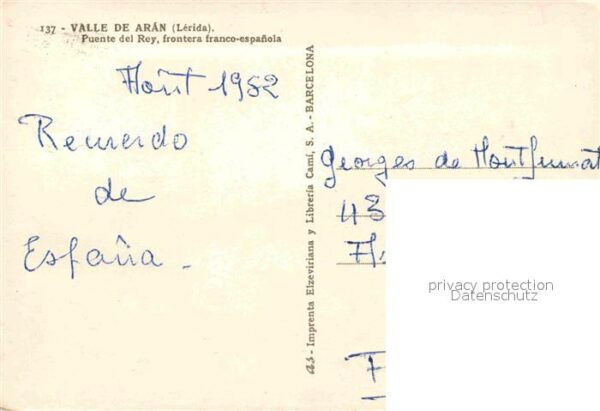 137 - VALLE DE ARÁN (Lérida).
Puente del Rey, frontera franco-española
Août 1952
Recuerdo
de
España -
- Imprenta Elzeviriana y Librería Camí, S. A. - BARCELONA
Georges de
43
privacy protection
Datenschutz
F